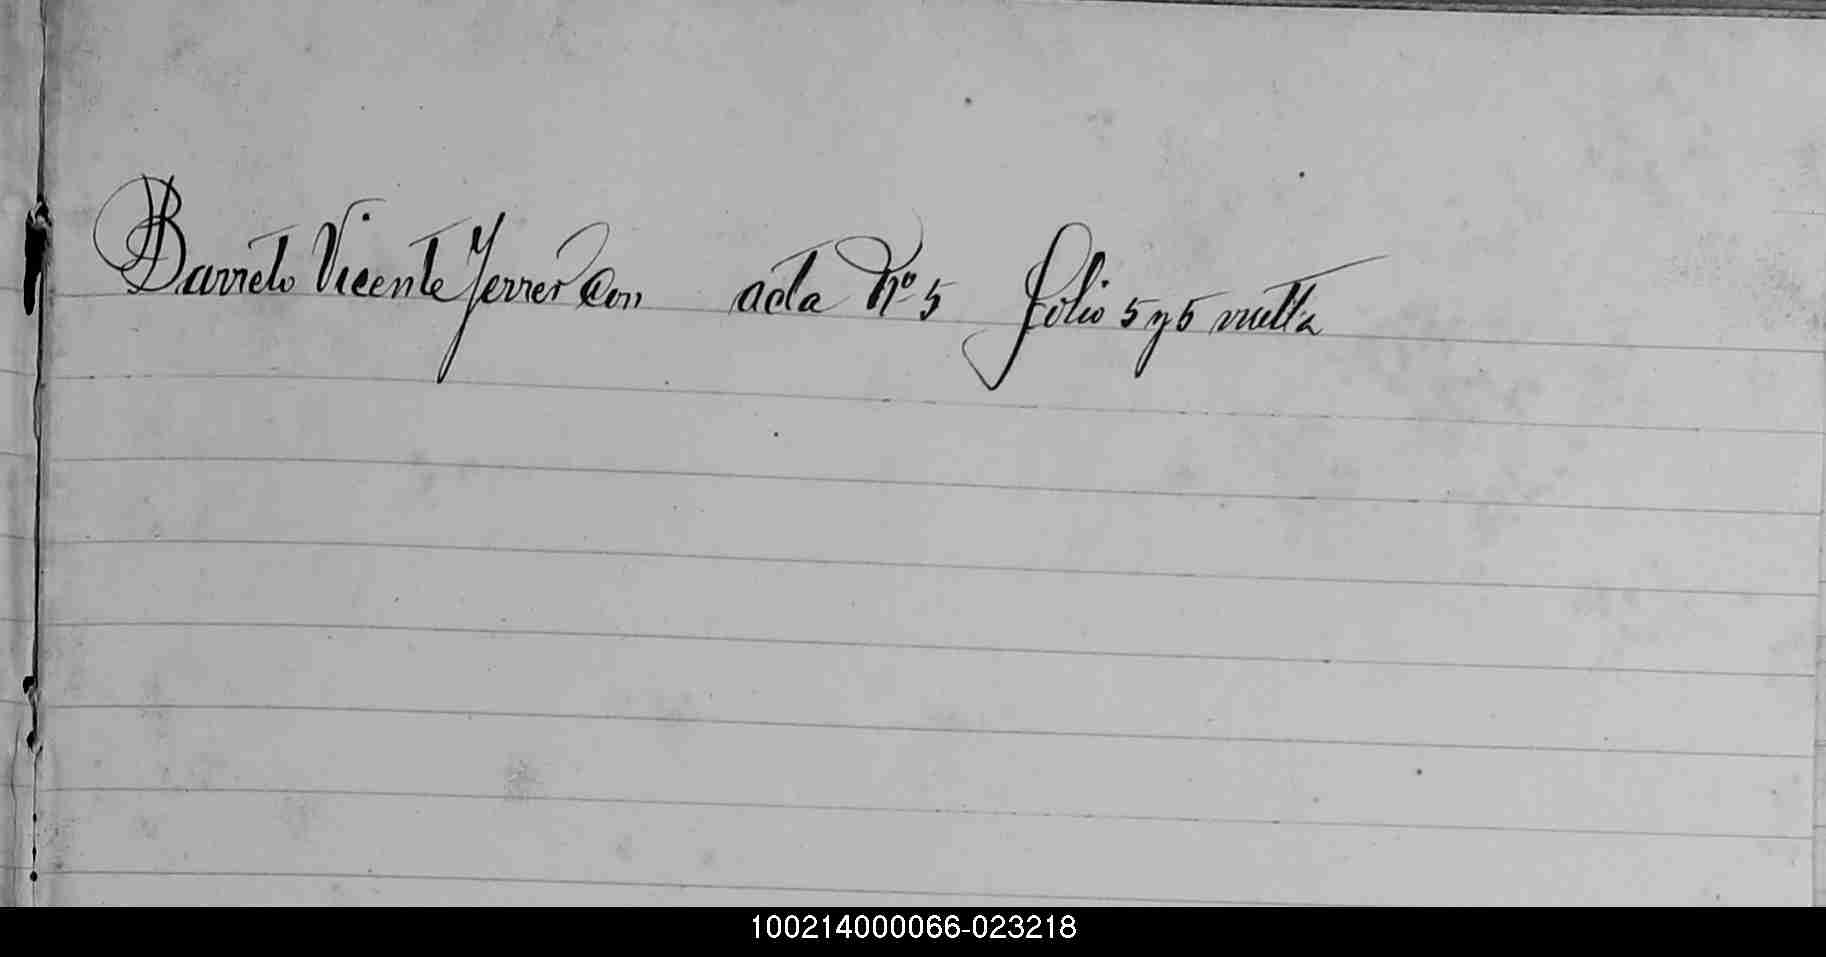 Barreto Vicente Ferrer con acta Nº 5 folio 5 y 5 vuelta
100214000066-023218